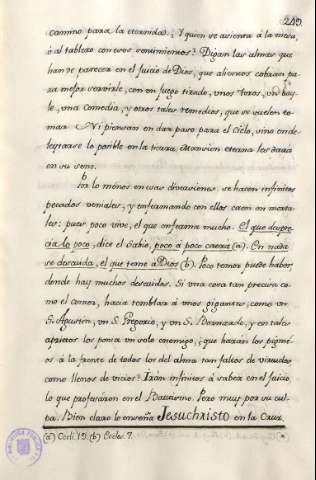 249
camino para la eternidad. ¿Y quien se asienta à la mesa,
ó al tablero con esos sentimientos? Digan las almas que
han de parecer en el Juicio de Dios, que alientos cobran pa-
ra mejor servirle, con un juego tirado, unos toros, un bay-
le, una Comedia, y otros tales remedios, que se vuelven to-
mar. Ni piensan en dar paso para el Cielo, sino en de-
leytarse lo posible en la tierra,
en su seno.
A lo ménos en esas diversiones se hacen infinitos
pecados veniales, y enfermando con ellos caen en morta-
les: pues poco vive, el que enferma mucho. El que despre-
cia lo poco, dice el Sabio, poco à poco caerá (a). En nada
se descuida, el que teme à Dios (b). Poco temor puede haber,
donde hay muchos descuidos. Si una cosa tan precisa co-
mo el comer, hacia temblar à unos gigantes, como un
S. Agustin, un S. Gregorio, y un S. Bernardo, y en tales
aprietos los ponia un solo enemigo; ¿que harán los pigmé-
os à la frente de todos los del alma tan faltos de virtudes
como llenos de vicios? Irán infinitos à saber en el Juicio,
lo que profesáron en el Bautismo. Pero muy por su cul-
pa. Bien claro lo enseña Jesuchristo en la Cruz.
(a) Ccli. 19. (b) Eccles. 7.